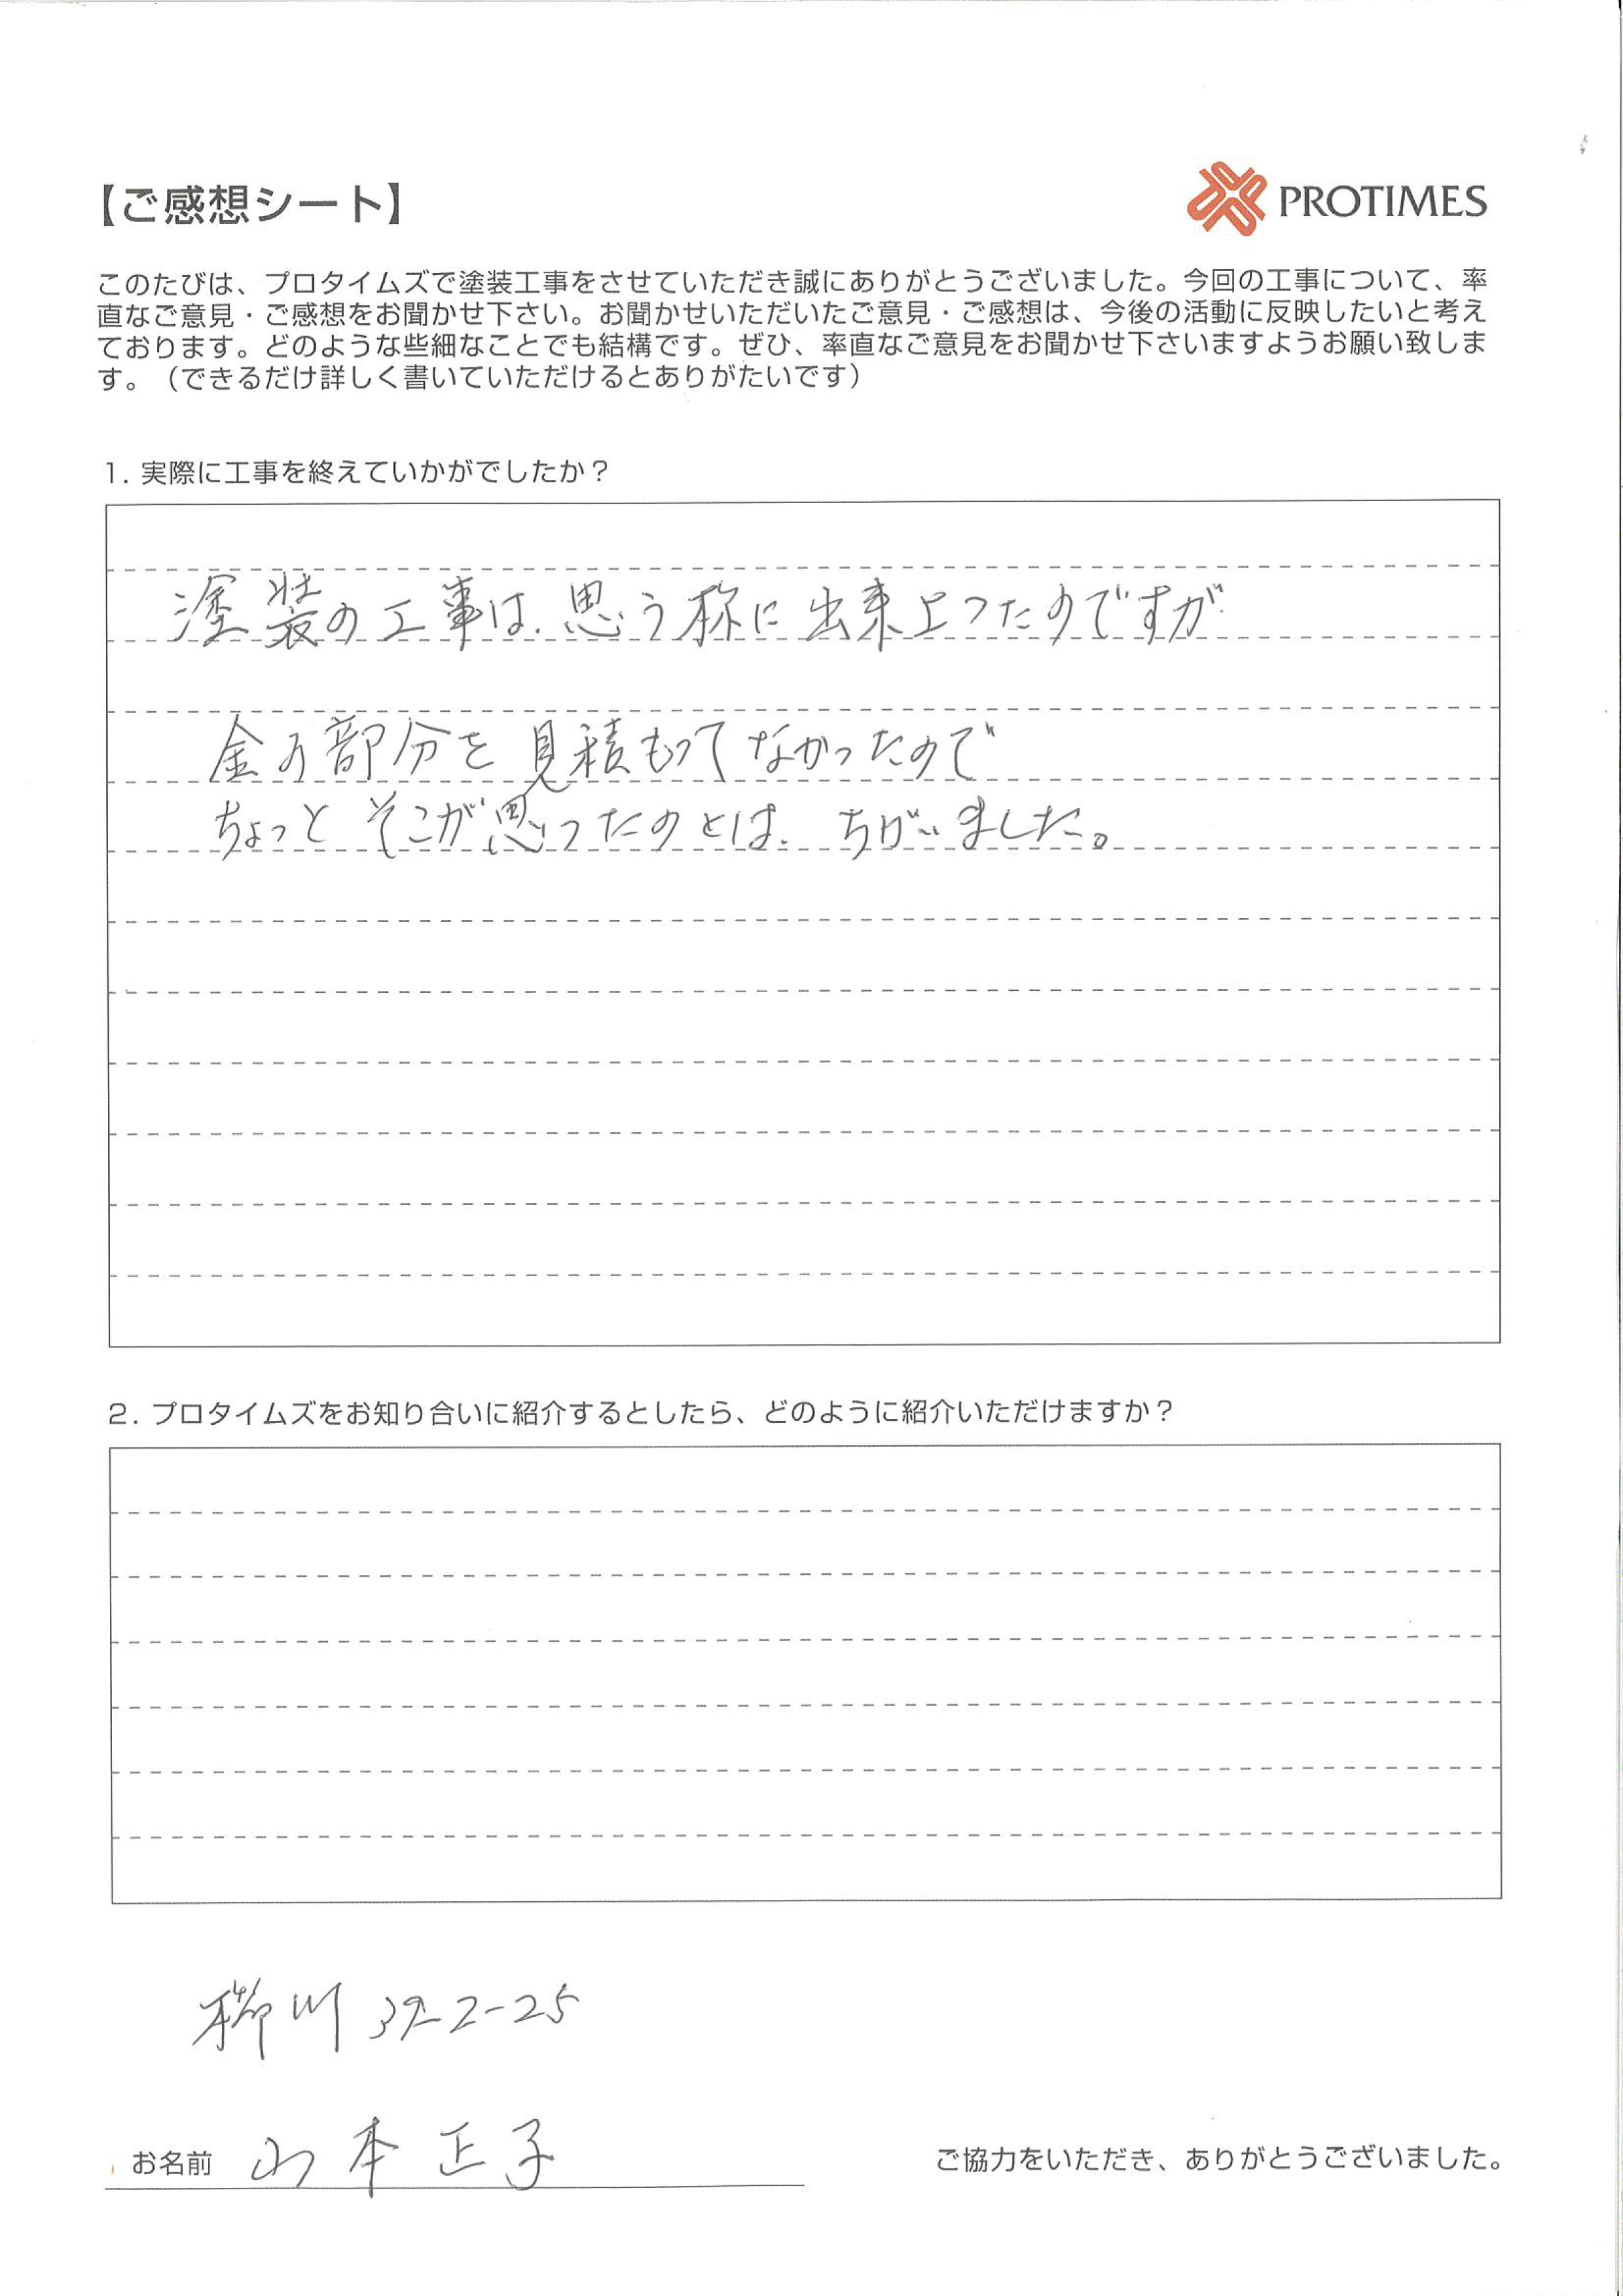 【ご感想シート】
PROTIMES
このたびは、プロタイムズで塗装工事をさせていただき誠にありがとうございました。今回の工事について、率
直なご意見・ご感想をお聞かせ下さい。お聞かせいただいたご意見・ご感想は、今後の活動に反映したいと考え
ております。どのような些細なことでも結構です。ぜひ、率直なご意見をお聞かせ下さいますようお願い致しま
す。（できるだけ詳しく書いていただけるとありがたいです）
1. 実際に工事を終えていかがでしたか？
塗装の工事は、思う様に出来上ったのですが
金の部分を見積もってなかったので
ちょっとそこが思ったのとは、ちがいました。
2. プロタイムズをお知り合いに紹介するとしたら、どのように紹介いただけますか？
柳川 39-2-25
お名前 山本正子
ご協力をいただき、ありがとうございました。